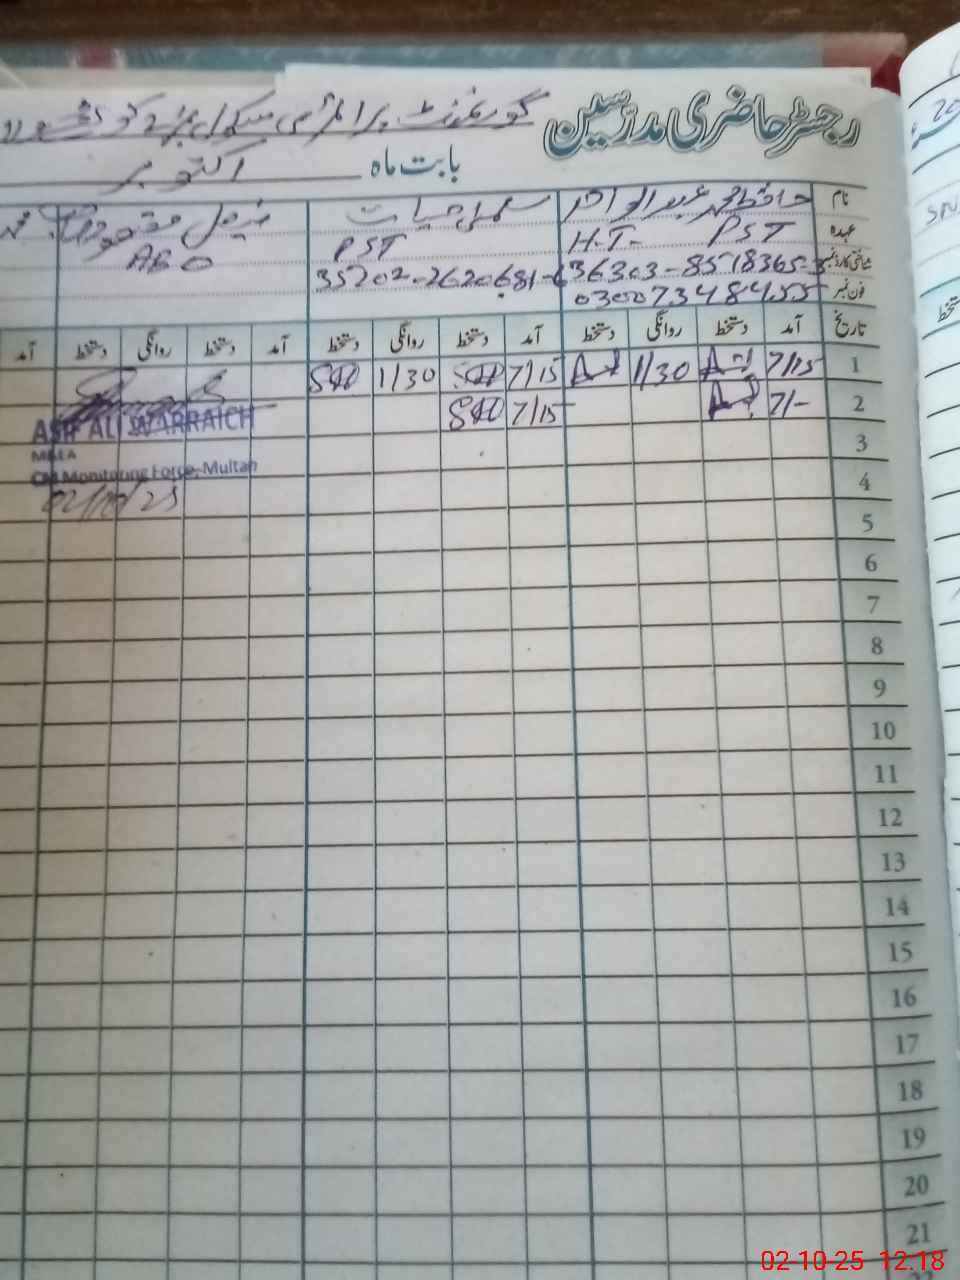 رجسٹر حاضری مدرسین
گورنمنٹ پرائمری سکول
بابت ماہ اکتوبر
نام حافظ محمد عبدالواحد
عہدہ H.T- PST PST AEO
شناختی کارڈ نمبر 36303-8518365-3 35202-2620681-6
فون نمبر 03007348455
تاریخ آمد دستخط روانگی دستخط آمد دستخط روانگی دستخط آمد دستخط روانگی دستخط آمد
1 7/15 1/30 7/15 1/30
2 7/- 7/15
ASIF ALI WARRAICH
3
MEEA
CM Monitoring Force, Multan
4
02/10/25
5
6
7
8
9
10
11
12
13
14
15
16
17
18
19
20
21
02-10-25 12:18